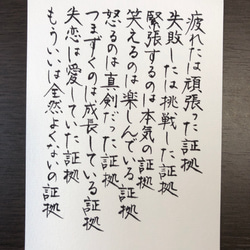 疲れたは頑張った証拠
失敗したは挑戦した証拠
緊張するのは本気の証拠
笑えるのは楽しんでいる証拠
怒るのは真剣だった証拠
つまずくのは成長している証拠
失恋は愛していた証拠
もういいは全然よくないの証拠